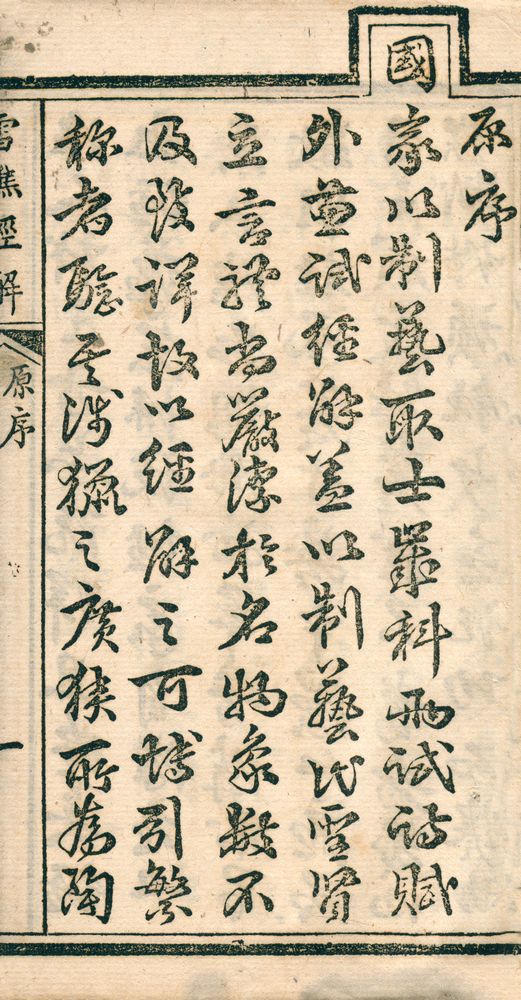 原序
國家以制藝取士歲科兩試詩賦
外並試經解蓋以制藝代聖賢
立言體尚嚴潔於名物象數不
及致詳故以經解之可博引繁
称者驗其涉獵之廣狹所為陶
雪樵經解
原序
一